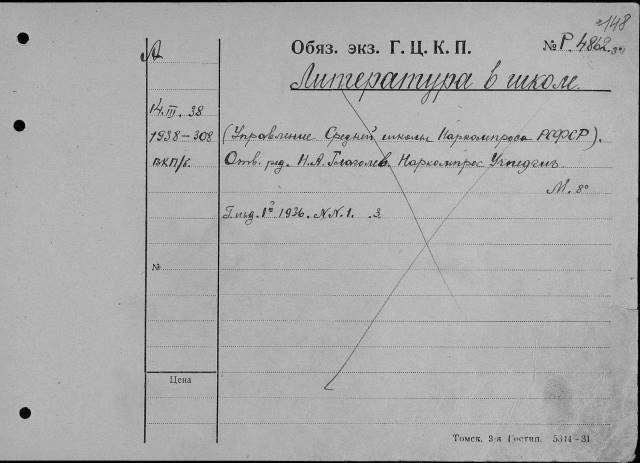 148
А
Обяз. экз. Г. Ц. К. П.
№ Р. 4862
Литература в школе.
14.III.38
1938–308
(Управление Средней школы Наркомпроса РСФСР).
вкп/б.
Отв. ред. Н. А. Глаголев. Наркомпрос Учпедгиз.
М. 8°
1936. NN. 1. 3
№
Цена
Томск, 3-я Гостип. 5314–31